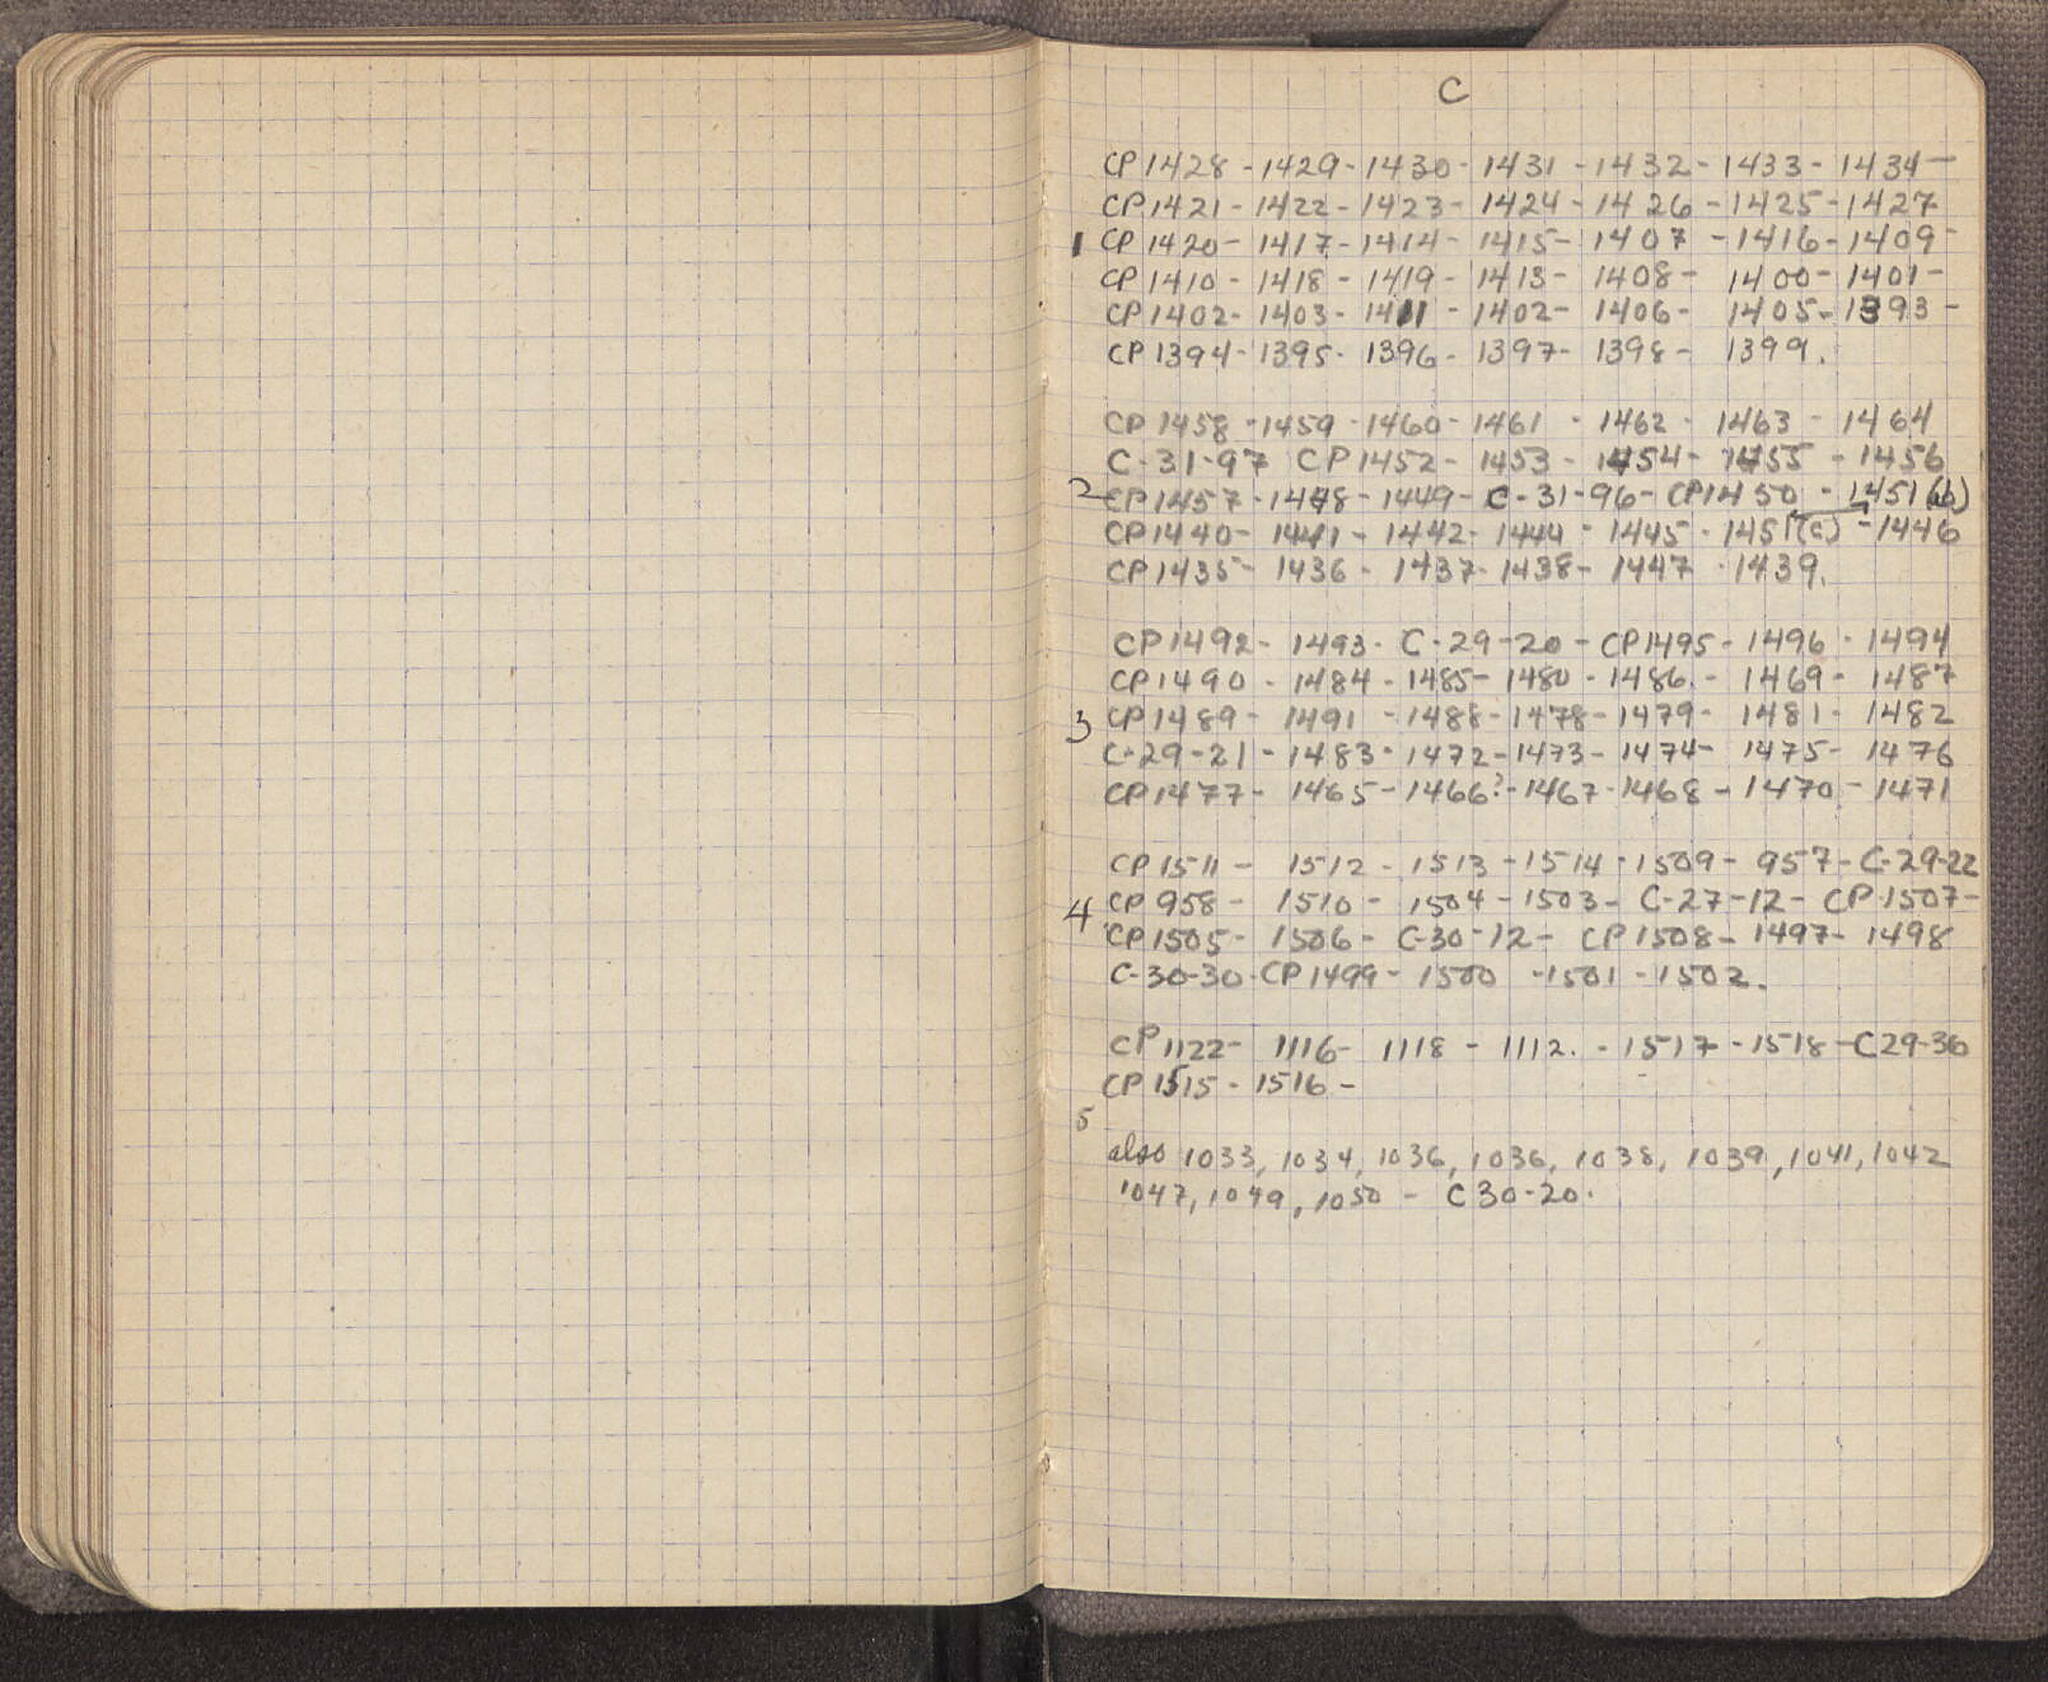 C
CP 1428 - 1429 - 1430 - 1431 - 1432 - 1433 - 1434 -
CP 1421 - 1422 - 1423 - 1424 - 1426 - 1425 - 1427
1 CP 1420 - 1417 - 1414 - 1415 - 1407 - 1416 - 1409 -
CP 1410 - 1418 - 1419 - 1413 - 1408 - 1400 - 1401 -
CP 1402 - 1403 - 1411 - 1402 - 1406 - 1405 - 1393 -
CP 1394 - 1395 - 1396 - 1397 - 1398 - 1399.
CP 1458 - 1459 - 1460 - 1461 - 1462 - 1463 - 1464
C-31-97 CP 1452 - 1453 - 1454 - 1455 - 1456
2 CP 1457 - 1448 - 1449 - C-31-96 - CP 1450 - 1451 (b)
CP 1440 - 1441 - 1442 - 1444 - 1445 - 1451(c) - 1446
CP 1435 - 1436 - 1437 - 1438 - 1447 - 1439.
CP 1492 - 1493 - C-29-20 - CP 1495 - 1496 - 1494
CP 1490 - 1484 - 1485 - 1480 - 1486. - 1469 - 1487
3 CP 1489 - 1491 - 1488 - 1478 - 1479 - 1481 - 1482
C-29-21 - 1483 - 1472 - 1473 - 1474 - 1475 - 1476
CP 1477 - 1465 - 1466? - 1467 - 1468 - 1470 - 1471
CP 1511 - 1512 - 1513 - 1514 - 1509 - 957 - C-29-22
4 CP 958 - 1510 - 1504 - 1503 - C-27-12 - CP 1507 -
CP 1505 - 1506 - C-30-12 - CP 1508 - 1497 - 1498
C-30-30 - CP 1499 - 1500 - 1501 - 1502.
CP 1122 - 1116 - 1118 - 1112. - 1517 - 1518 - C29-36
CP 1515 - 1516 -
5
also 1033, 1034, 1036, 1036, 1038, 1039, 1041, 1042
1047, 1049, 1050 - C 30-20.